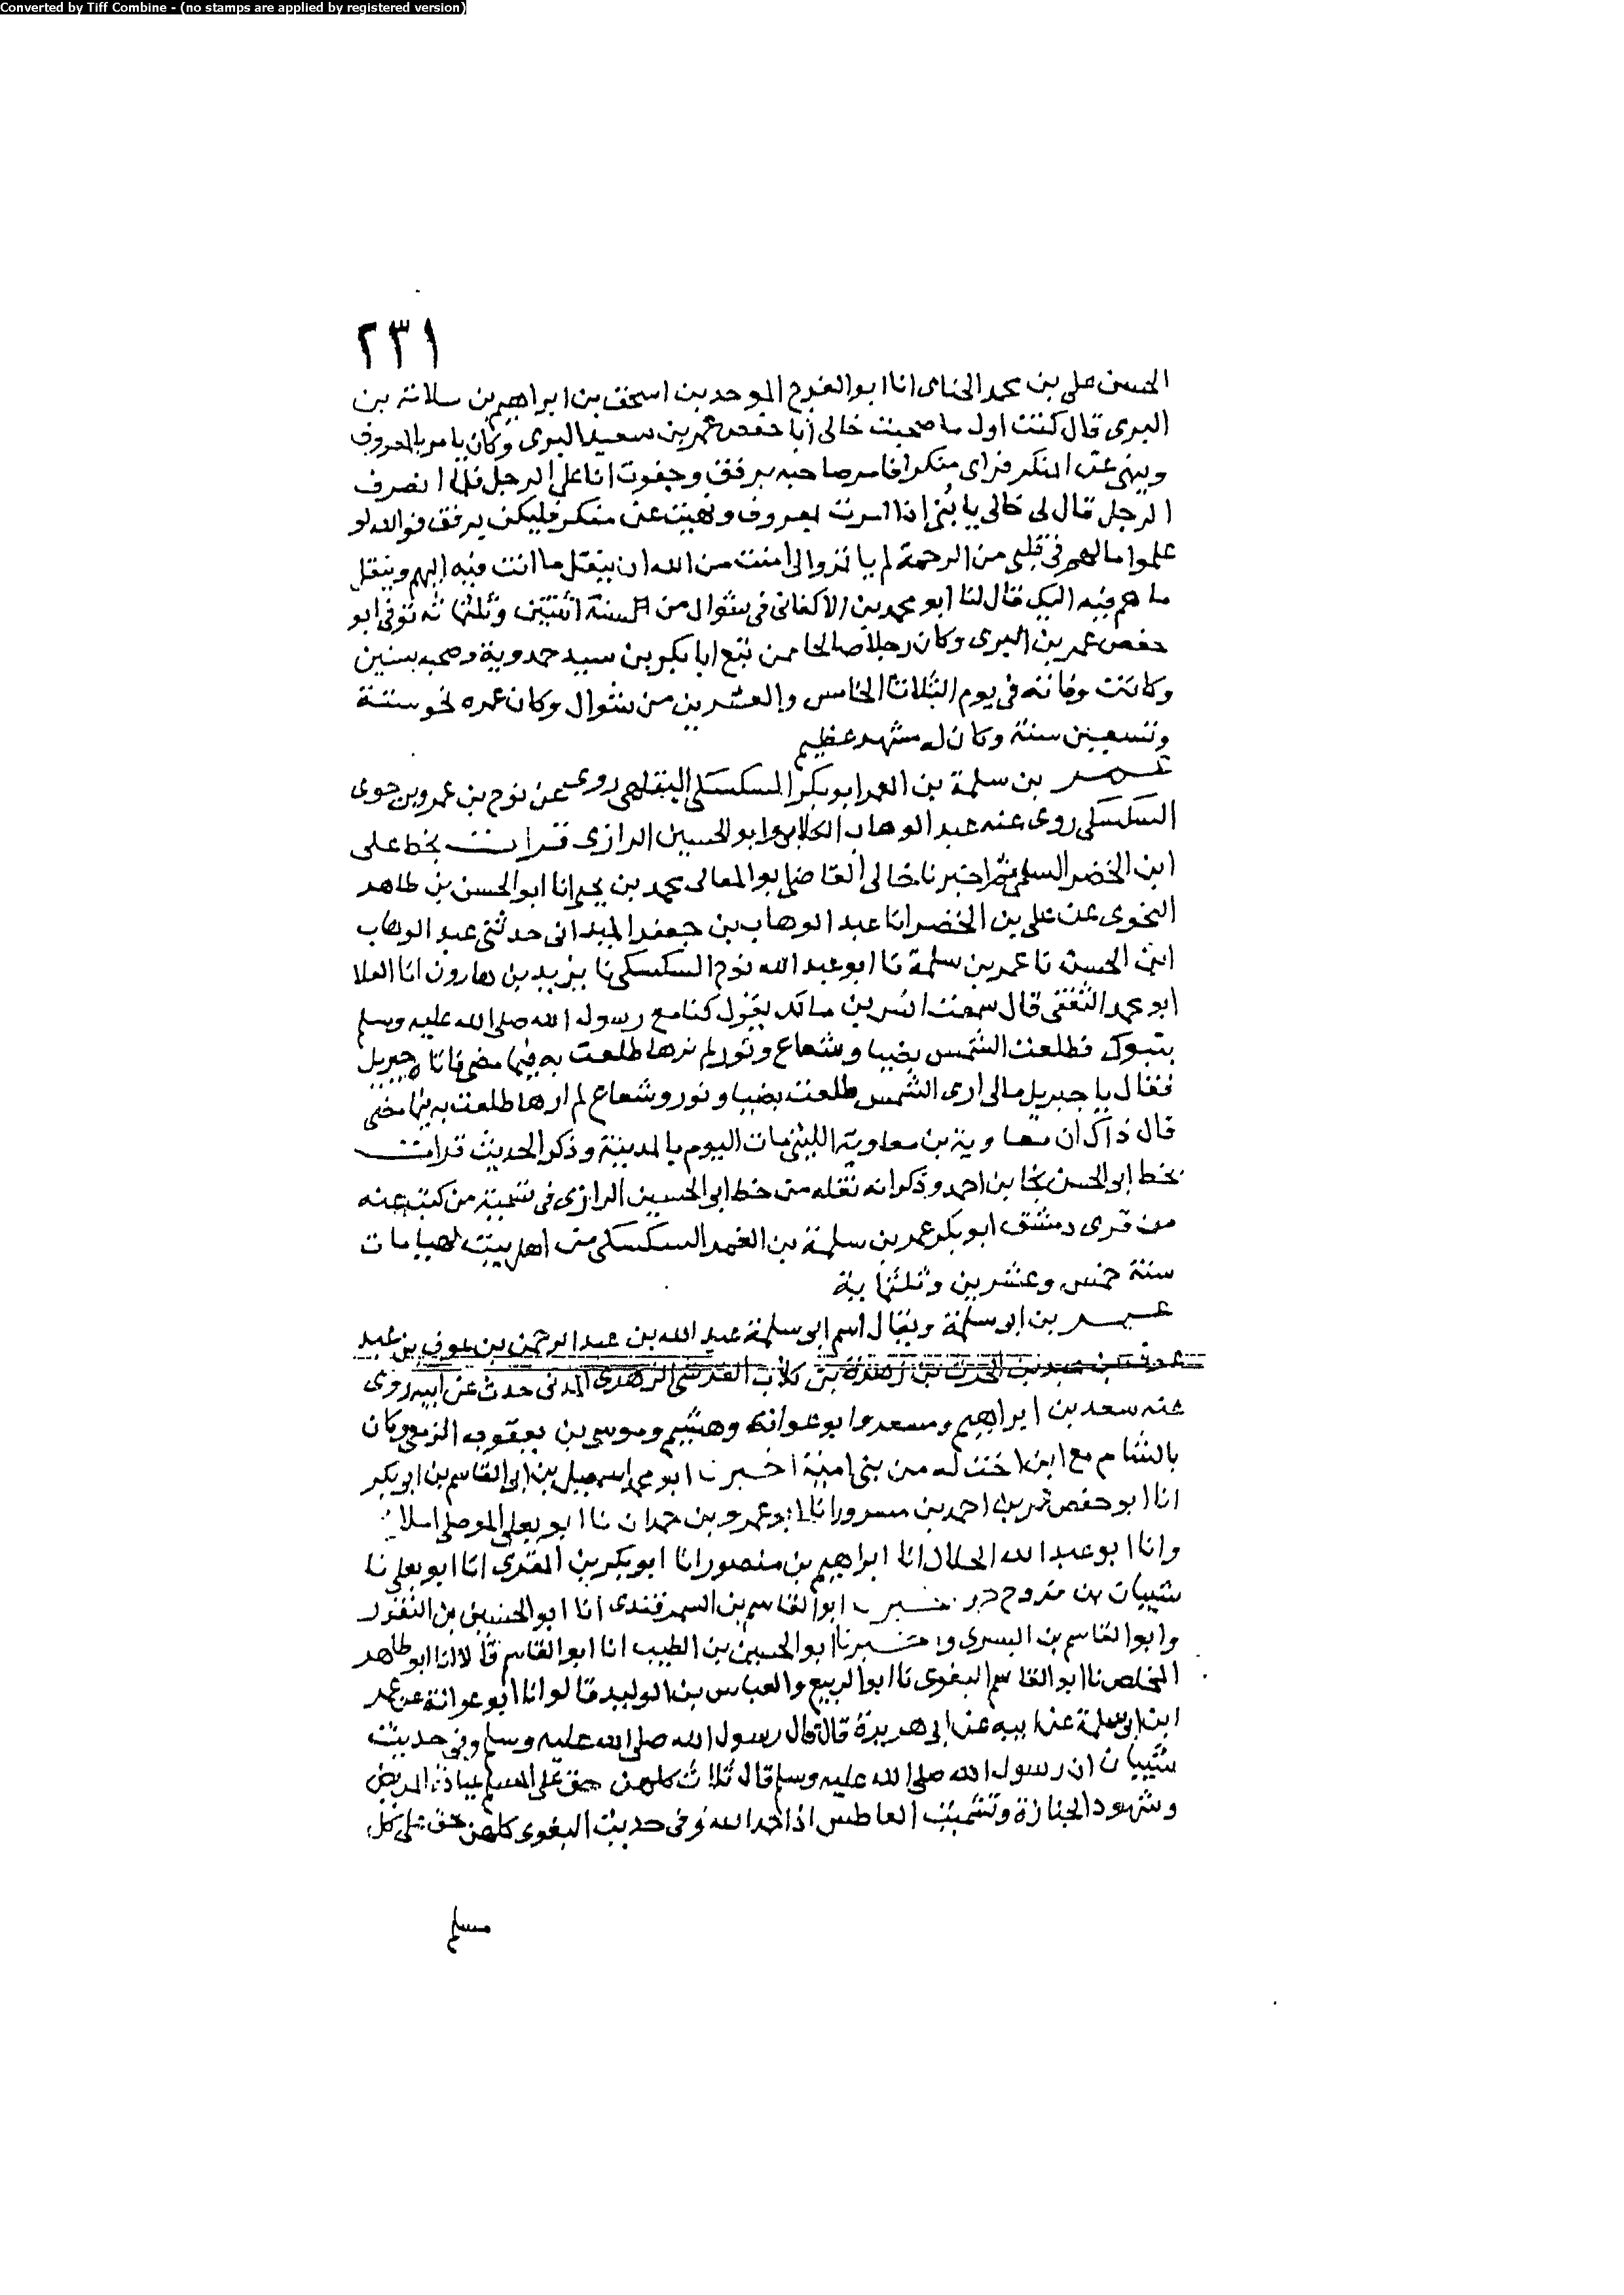 Converted by Tiff Combine - (no stamps are applied by registered version)
٢٣١
الحسن علي بن محمد الحناى انا ابو الفرج الموحد بن اسحق بن ابراهيم بن سلامة بن
البرى قال كنت اول ما صحبت خالى أبا حفص عمر بن سعيد البرى وكان يامر بالمعروف
وينهى عن المنكر فراى منكرا فامر صاحبه برفق وجفوت انا على الرجل فلما انصرف
الرجل قال لى خالى يا بُنى اذا امرت بمعروف ونهيت عن منكر فليكن برفق فوالله لو
علموا مالهم فى قلبى من الرحمة لم ياتزوا لى امنت من الله ان ينقل ما انت فيه اليهم وينقل
ما هم فيه اليك قال لنا ابو محمد بن الاكفانى فى شوال من السنة اثنتين وثلثماثه توفى ابو
حفص عمر بن البرى وكان رجلا صالحا ممن تبع ابا بكر بن سيد حمدوية وصحبه سنين
وكانت وفاته فى يوم الثلاثا الخامس والعشرين من شوال وكان عمره نحو ستة
وتسعين سنة وكان له مشهد عظيم
عمر بن سلمة بن الغمر ابو بكر السكسكى البتلهى روى عن نوح بن عمرو بن حوى
السكسكى روى عنه عبد الوهاب الكلابى وابو الحسين الرازى قرات بخط على
ابن الخضر السلمى ثم اخبرنا خالى القاضى ابو المعالى محمد بن يحيى انا ابو الحسن بن طاهر
النحوى عن على بن الخضر انا عبد الوهاب بن جعفر الميدانى حدثنى عبد الوهاب
ابن الحسن نا عمر بن سلمة نا ابو عبد الله نوح السكسكى نا يزيد بن هارون انا العلا
ابو محمد الثقفى قال سمعت انس بن مالك يقول كنا مع رسول الله صلى الله عليه وسلم
بتبوك فطلعت الشمس بضيا وشعاع ونور لم نرها طلعت به فيما مضى فاتاه جبريل
فقال يا جبريل مالى ارى الشمس طلعت بضيا ونور وشعاع لم ارها طلعت به فيما مضى
قال ذاك ان معاوية بن معاوية الليثى مات اليوم بالمدينة وذكر الحديث قرات
بخط ابى الحسن نجا بن احمد وذكر انه نقله من خط ابى الحسين الرازى فى تسمية من كتب عنه
من قرى دمشق ابو بكر عمر بن سلمة بن الغمر السكسكى من اهل بيت لهيا مات
سنة خمس وعشرين وثلثماية
عمر بن ابى سلمة ويقال اسم ابى سلمة عبد الله بن عبد الرحمن بن عوف بن عبد
عوف بن عبد بن الحرث بن زهرة بن كلاب القرشى الزهرى المدنى حدث عن ابيه روى
عنه سعد بن ابراهيم ومسعر وابو عوانه وهشيم وموسى بن يعقوب الزمعى وكان
بالشام مع ابن اخت له من بنى امية اخبرنا ابو محمد اسمعيل بن ابى القاسم بن ابو بكر
انا ابو حفص عمر بن احمد بن مسرور انا ابو عمرو بن حمدان نا ابو يعلى الموصلى املا
وانا ابو عبد الله الخلال انا ابراهيم بن منصور انا ابو بكر بن المقرى انا ابو يعلى نا
شيبان بن فروح ابو القاسم بن السمرقندى انا ابو الحسين بن النقور
وابو القاسم بن البسرى واخبرنا ابو الحسين بن الطيب انا ابو القاسم قالا لنا ابو طاهر
المخلص نا ابو القاسم البغوى نا ابو الربيع والعباس بن الوليد قالوا نا ابو عوانة عن عمر
ابن ابى سلمة عن ابيه عن ابى هريرة قال قال رسول الله صلى الله عليه وسلم وفى حديث
شيبان ان رسول الله صلى الله عليه وسلم قال ثلاث كلهن حق على المسلم عيادة المريض
وشهود الجنازة وتشميت العاطس اذا حمد الله وفى حديث البغوى كلهن حق على كل
مسلم